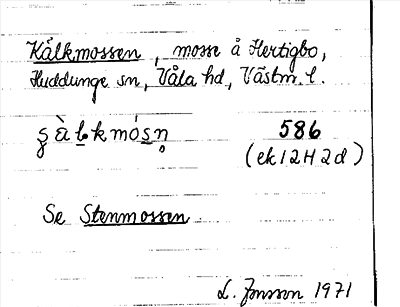 Kålkmossen, mosse å Hertigbo,
Huddunge sn, Våla hd, Västm. l.
586
(ek 12H 2d)
Se Stenmossen.
L. Jonsson 1971